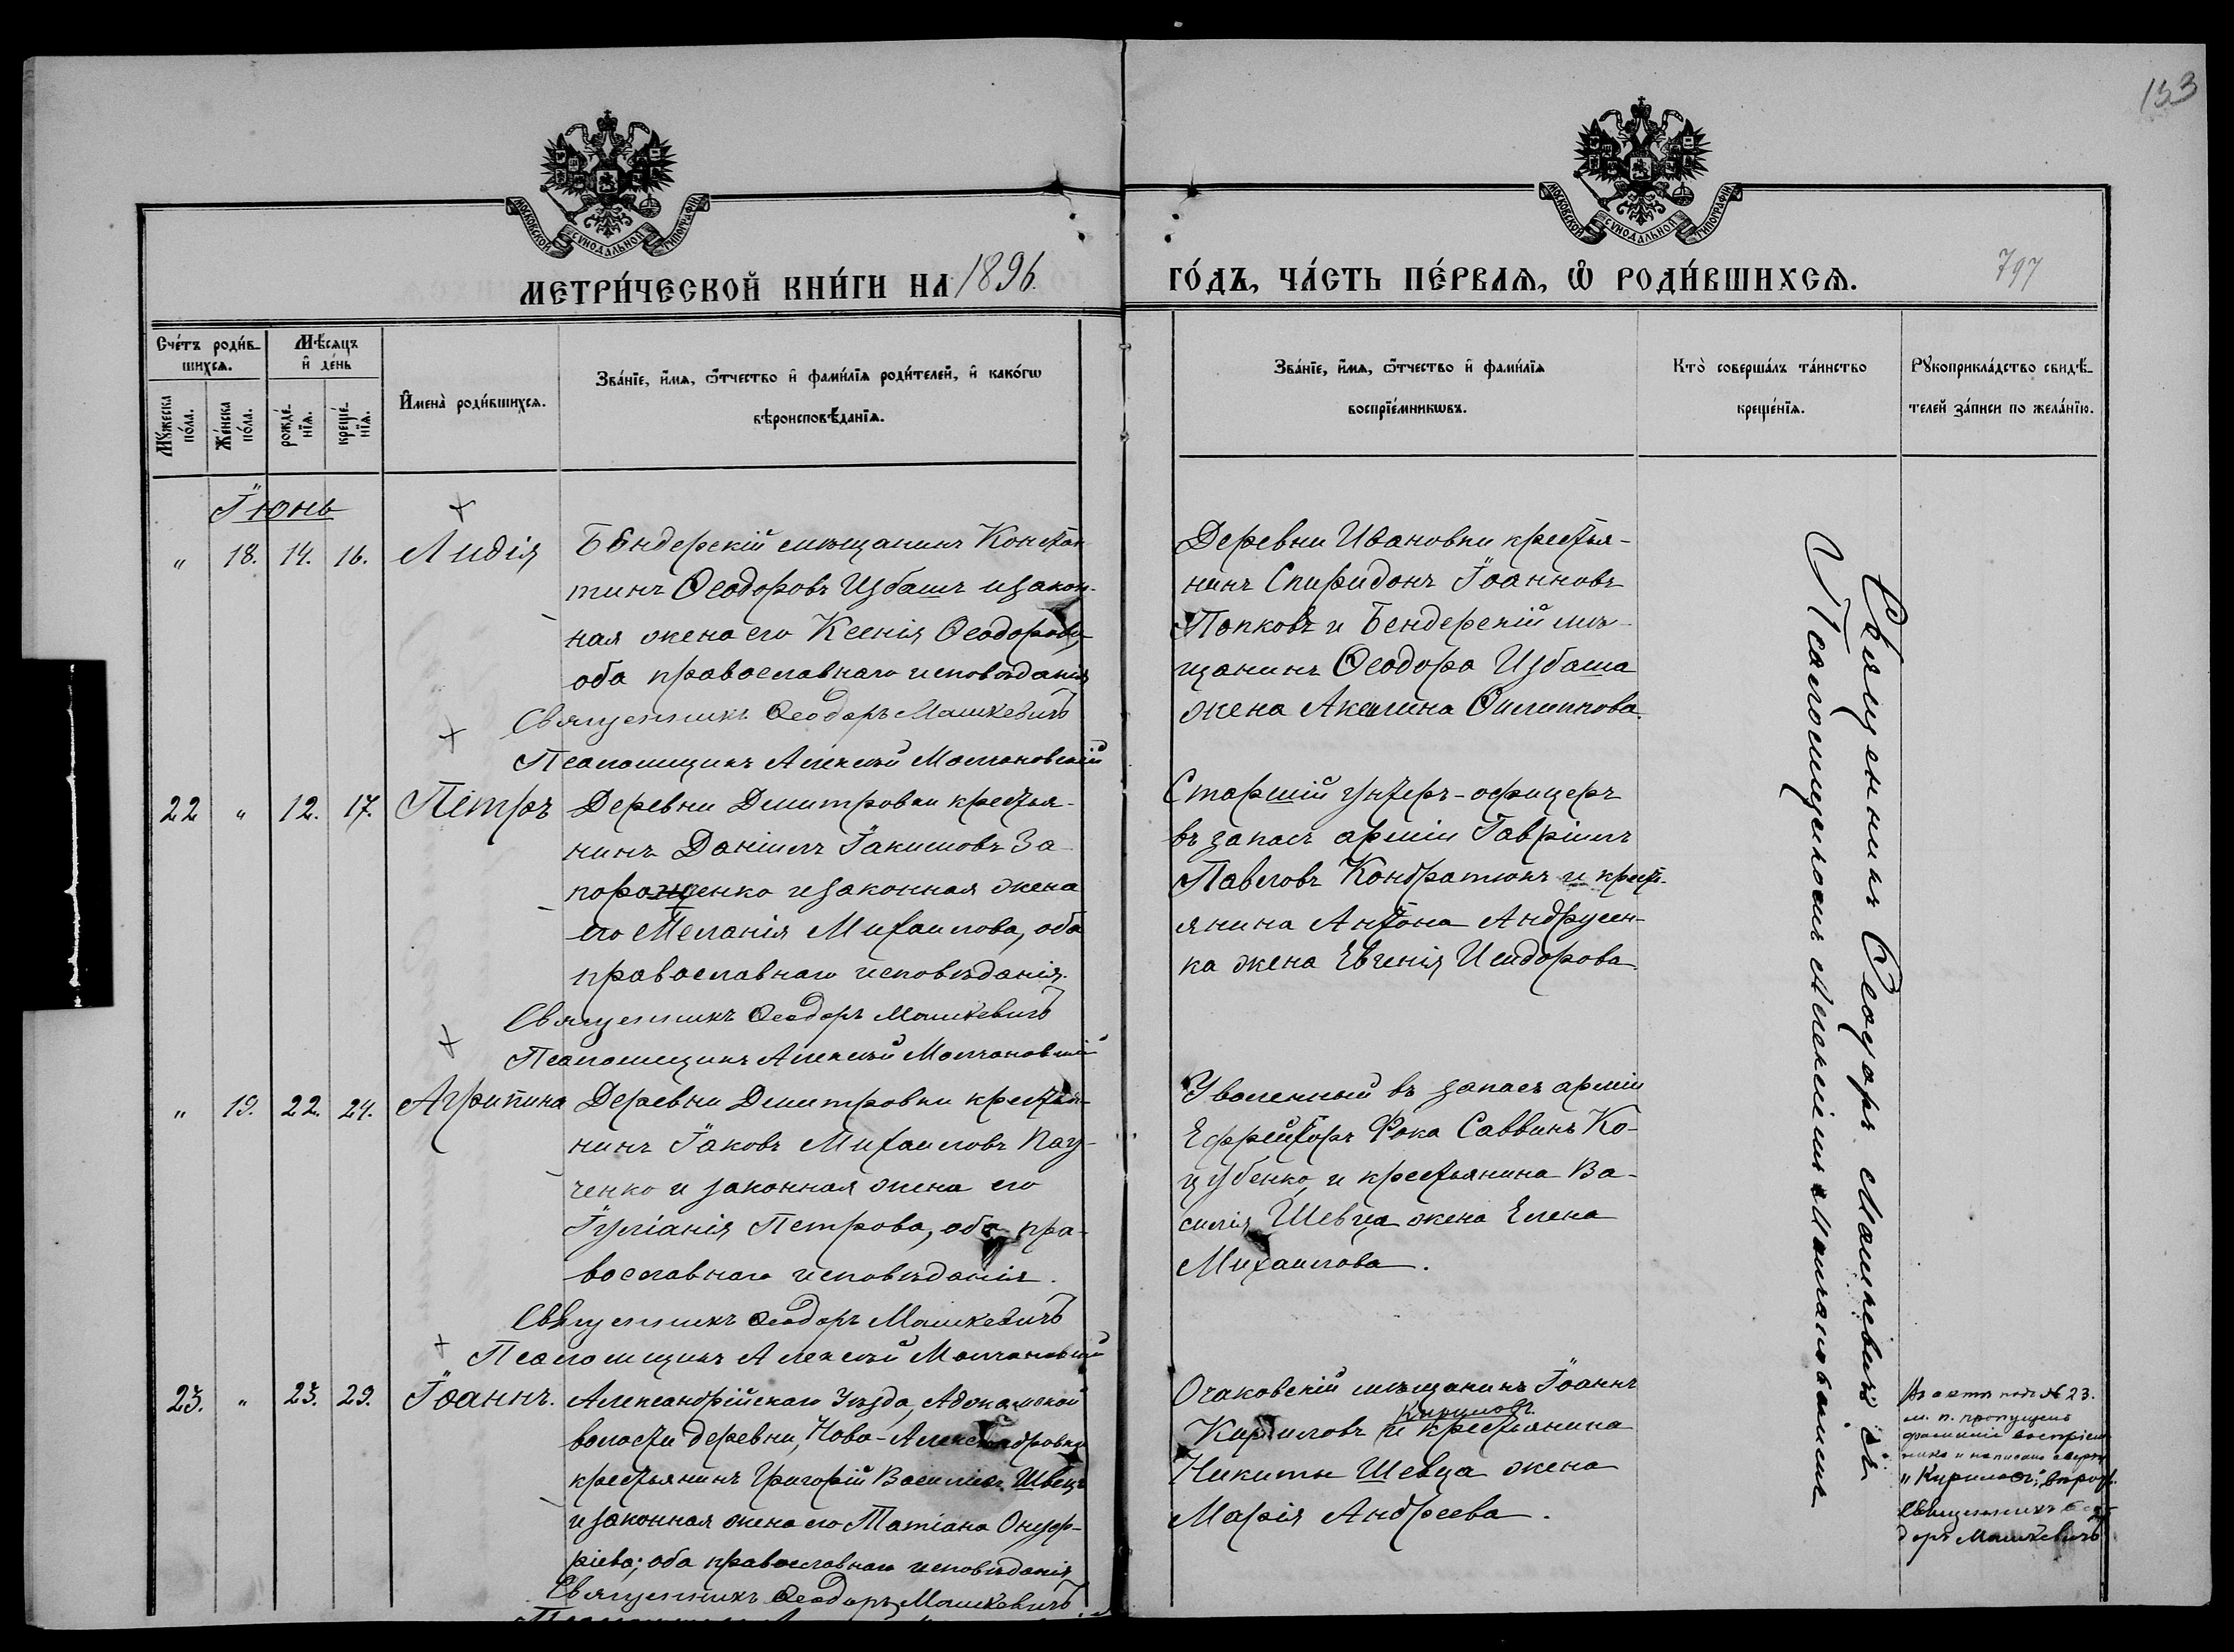 153
МОСКОВСКОЙ СѴНОДАЛЬНОЙ ТИПОГРАФІИ
МОСКОВСКОЙ СѴНОДАЛЬНОЙ ТИПОГРАФІИ
МЕТРИ́ЧЕСКОЙ КНИ́ГИ НА 1896.
ГО́ДЪ, ЧА́СТЬ ПЕ́РВАѦ, Ѿ РОДИ́ВШИХСѦ.
797
Сче́тъ роди́в-
шихсѧ.
Мѣ́сѧцъ
и҆ де́нь
Мꙋ́жеска
по́ла.
Же́нска
по́ла.
рожде́-
нїѧ.
креще́-
нїѧ.
И҆мена̀ роди́вшихсѧ.
Зва́нїе, и҆́мѧ, ѻ҆́тчество и҆ фами́лїѧ роди́телей, и҆ како́гѡ
вѣроисповѣ́данїѧ.
Зва́нїе, и҆́мѧ, ѻ҆́тчество и҆ фами́лїѧ
воспрїе́мникѡвъ.
Кто̀ соверша́лъ та́инство
креще́нїѧ.
Рꙋкоприкла́дство свидѣ́-
телей за́писи по жела́нїю.
Іюнь
" 18. 14. 16. Лидія
Бендерскій мѣщанинъ Констан
тинъ Ѳеодоровъ Избашъ и закон-
ная жена его Ксенія Ѳеодорова,
оба православнаго исповѣданія
Священникъ Ѳеодоръ Машкевичъ
Псаломщикъ Алексѣй Молчановскій
Деревни Ивановки крестья-
нинъ Спиридонъ Іоанновъ
Попковъ и Бендерскій мѣ-
щанинъ Ѳеодора Избаша
жена Акилина Филиппова.
22 " 12. 17. Петръ
Деревни Димитровки крестья-
нинъ Даніилъ Іакимовъ За
порощенко и законная жена
его Меланія Михаилова, оба
православнаго исповѣданія.
Священникъ Ѳеодоръ Машкевичъ
Псаломщикъ Алексѣй Молчановскій
Старшій унтеръ-офицеръ
въ запасѣ арміи Гавріилъ
Павловъ Кондратюкъ и крест-
янина Антона Андрусен-
ка жена Евгенія Исидорова.
" 19. 22. 24. Агрипина
Деревни Димитровки крестья-
нинъ Іаковъ Михаиловъ Кау-
ченко и законная жена его
Іуліанія Петрова, оба пра-
вославнаго исповѣданія.
Священникъ Ѳеодоръ Машкевичъ
Псаломщикъ Алексѣй Молчановскій
Уволенный въ запасъ арміи
Ефрейторъ Фока Саввинъ Ко-
цубенко, и крестьянина Ва-
силія Шевца жена Елена
Михаилова.
23. " 23. 29. Іоаннъ.
Александрійскаго Уѣзда,
волости деревни, Ново-Александровки
крестьянинъ Григорій Василіев. Швецъ
и законная жена его Татіана Онуф-
ріева; оба православнаго исповѣданія
Священникъ Ѳеодоръ Машкевичъ
Очаковскій мѣщанинъ Іоаннъ
Кириловъ
Кириловъ и крестьянина
Никиты Шевца жена
Марія Андреева.
Священникъ Ѳеодоръ Машкевичъ съ
Псаломщикомъ Алексѣемъ Молчановскимъ
Въ актѣ подъ № 23.
м. п. пропущена
фамилія воспріем
ника и написано сверху
"Кириловъ",
Священникъ Ѳео
доръ Машкевичъ